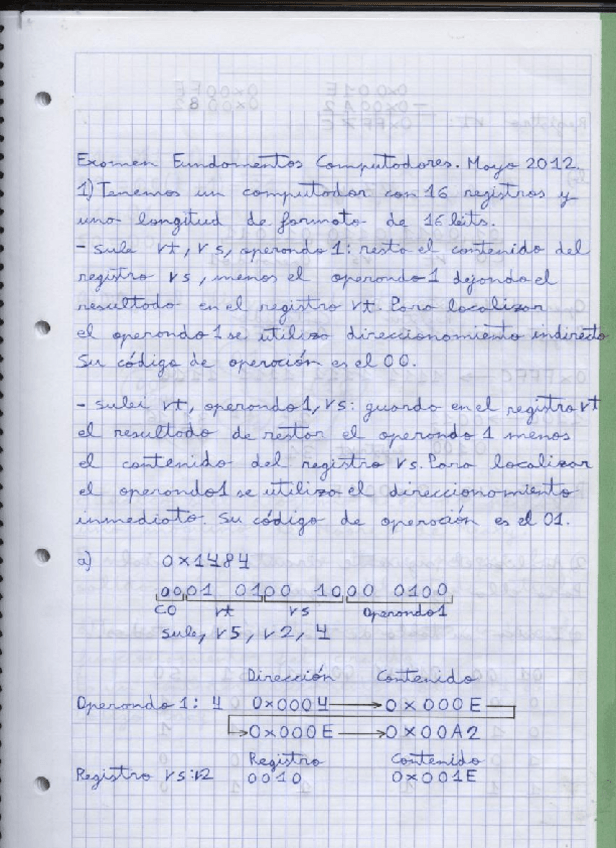 Examen Fundamentos Computadores. Mayo 2012.
1) Tenemos un computador con 16 registros y
una longitud de formato de 16 bits.
- sub rt, rs, operando1: resta el contenido del
registro rs, menos el operando1 dejando el
resultado en el registro rt. Para localizar
el operando1 se utiliza direccionamiento indirecto
Su código de operación es el 00.
- subi rt, operando1, rs: guarda en el registro rt
el resultado de restar el operando 1 menos
el contenido del registro rs. Para localizar
el operando1 se utiliza el direccionamiento
inmediato. Su código de operación es el 01.
a) 0x1484
0001 0100 1000 0100
CO rt rs Operando1
sub, r5, r2, 4
Dirección Contenido
Operando1: 4 0x0004 → 0x000E
0x000E → 0x00A2
Registro Contenido
Registro rs:r2 0010 0x001E